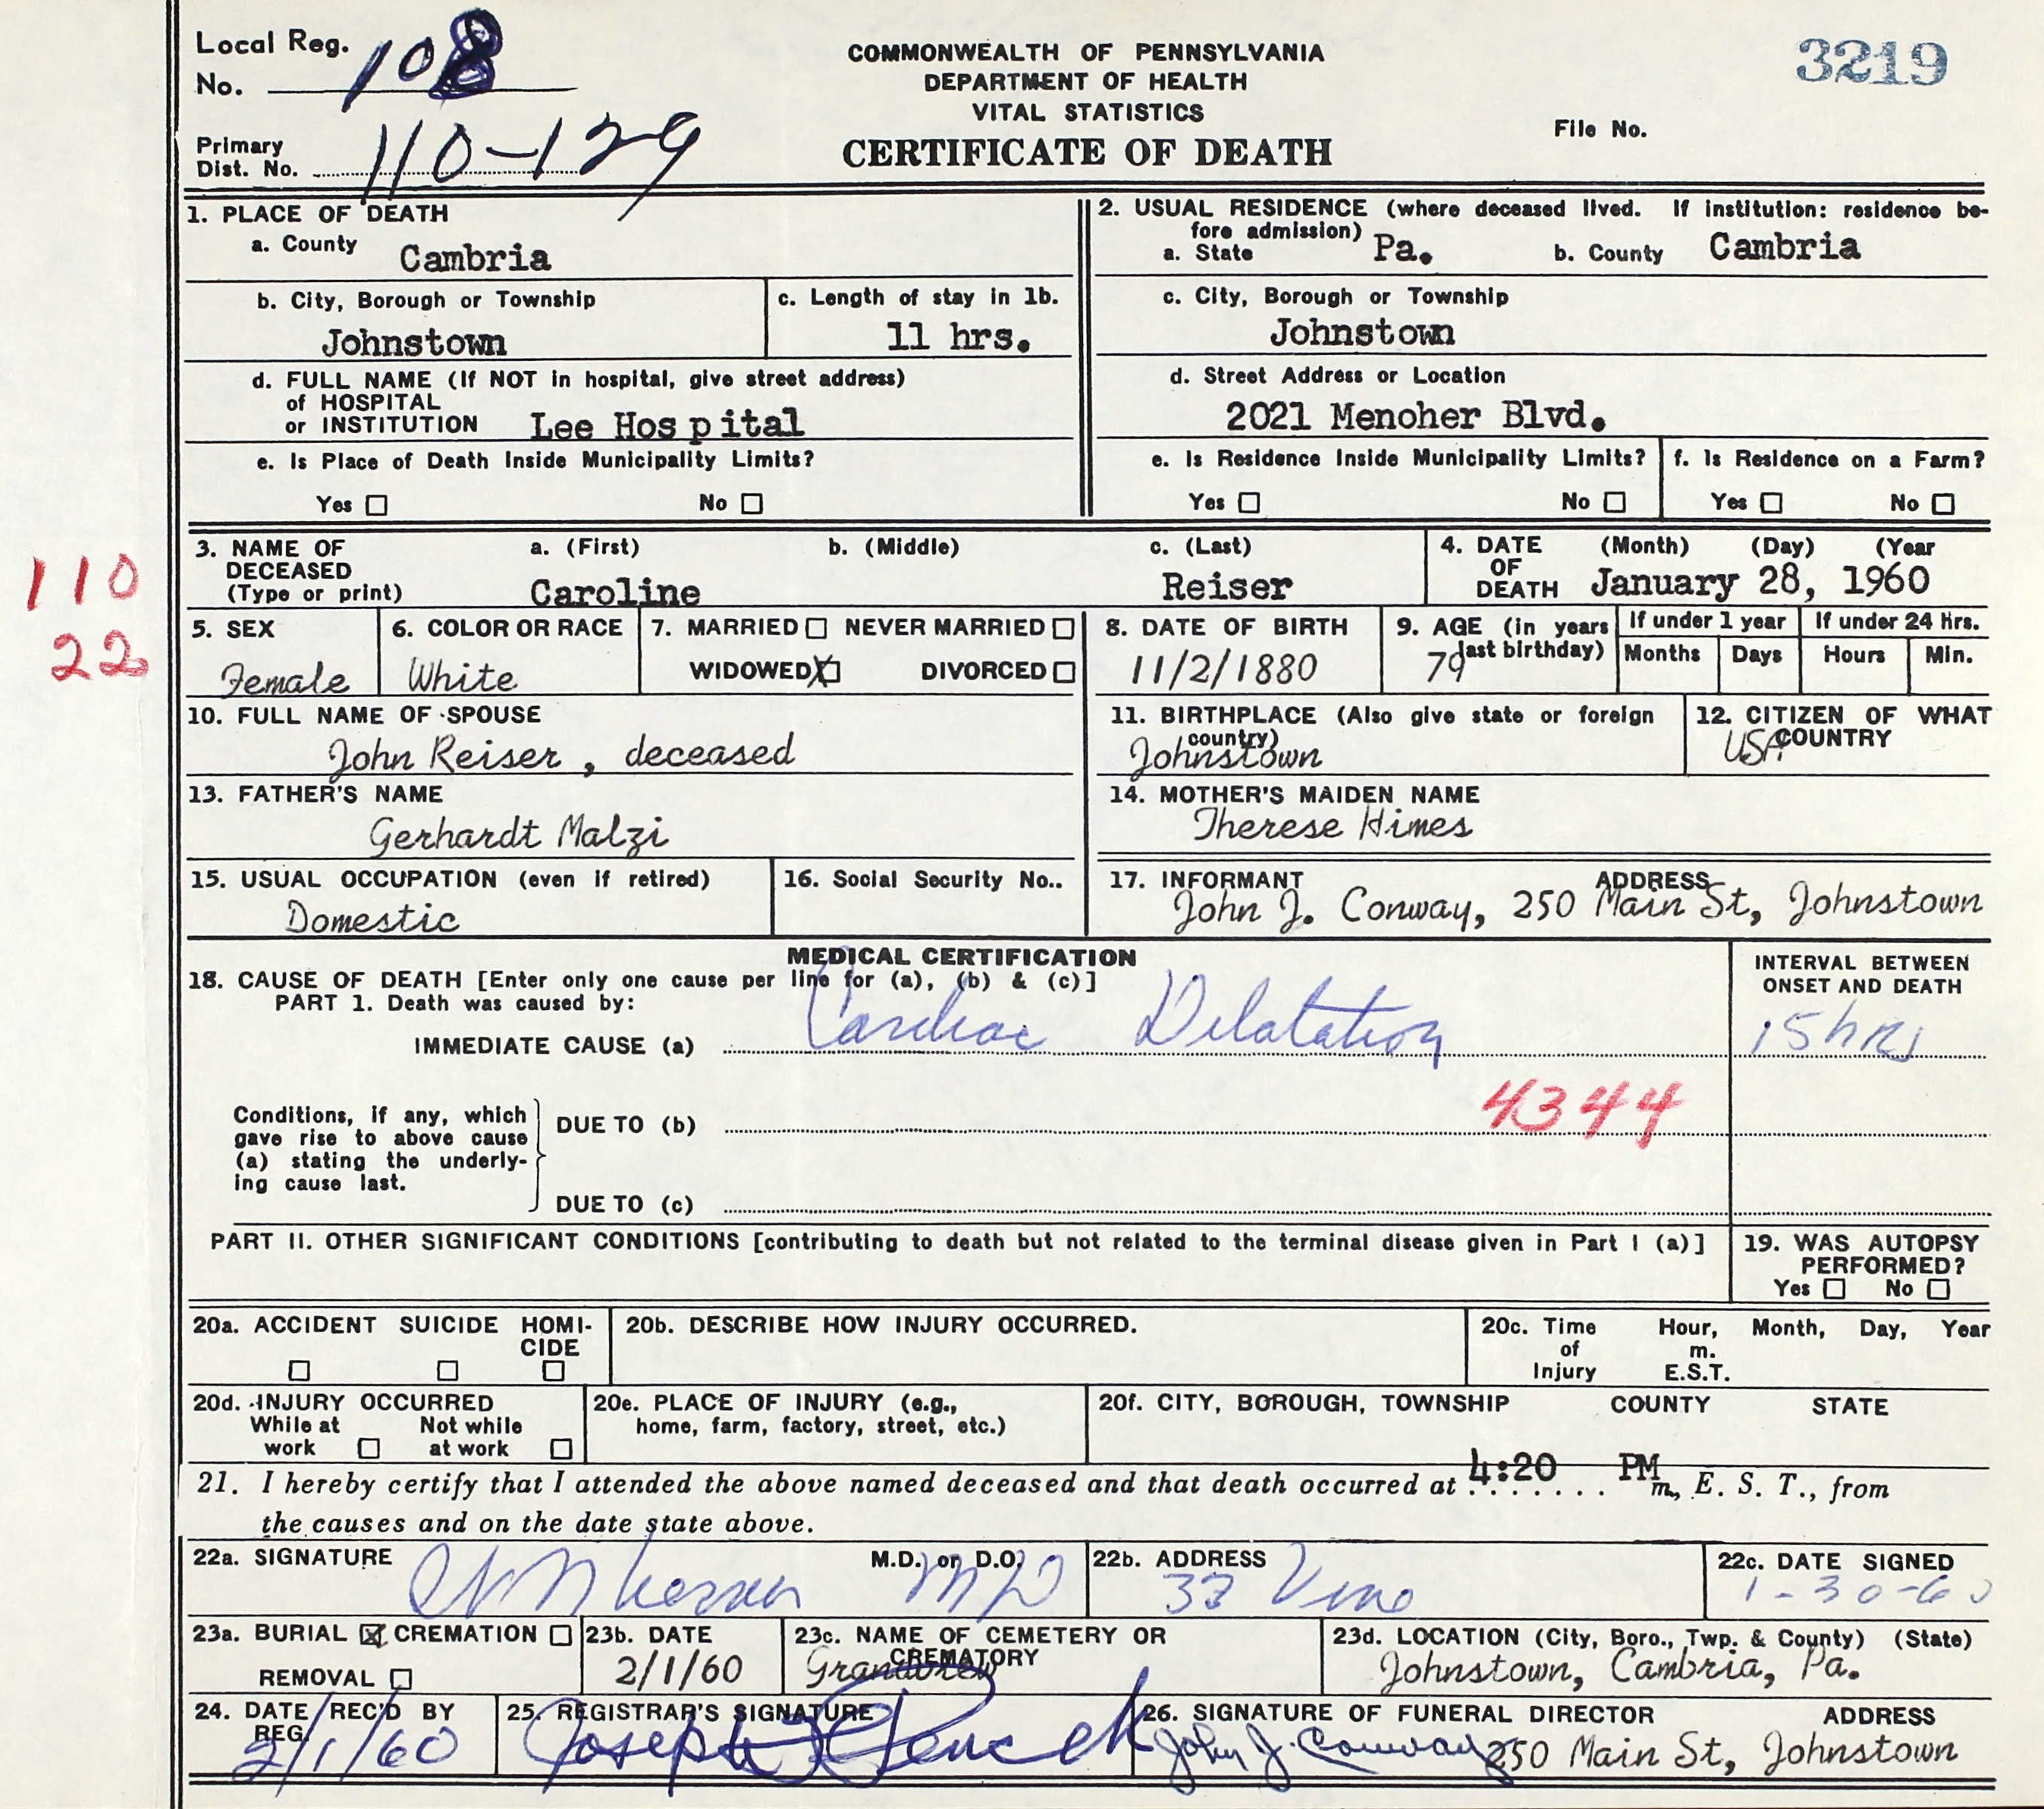 Local Reg. No. 108
COMMONWEALTH OF PENNSYLVANIA
DEPARTMENT OF HEALTH
VITAL STATISTICS
CERTIFICATE OF DEATH
3219
File No.
Primary Dist. No. 110-129
1. PLACE OF DEATH
a. County Cambria
b. City, Borough or Township
Johnstown
c. Length of stay in 1b.
11 hrs.
d. FULL NAME (If NOT in hospital, give street address)
of HOSPITAL
or INSTITUTION Lee Hospital
e. Is Place of Death Inside Municipality Limits?
Yes ☐ No ☐
2. USUAL RESIDENCE (where deceased lived. If institution: residence be-
fore admission)
a. State Pa. b. County Cambria
c. City, Borough or Township
Johnstown
d. Street Address or Location
2021 Menoher Blvd.
e. Is Residence Inside Municipality Limits?
Yes ☐ No ☐
f. Is Residence on a Farm?
Yes ☐ No ☐
110
22
3. NAME OF DECEASED (Type or print)
a. (First) b. (Middle) c. (Last)
Caroline Reiser
4. DATE OF DEATH (Month) (Day) (Year
January 28, 1960
5. SEX
Female
6. COLOR OR RACE
White
7. MARRIED ☐ NEVER MARRIED ☐
WIDOWED ☒ DIVORCED ☐
8. DATE OF BIRTH
11/2/1880
9. AGE (in years last birthday)
79
If under 1 year
Months Days
If under 24 Hrs.
Hours Min.
10. FULL NAME OF SPOUSE
John Reiser, deceased
11. BIRTHPLACE (Also give state or foreign country)
Johnstown
12. CITIZEN OF WHAT COUNTRY
USA
13. FATHER'S NAME
Gerhardt Malzi
14. MOTHER'S MAIDEN NAME
Therese Himes
15. USUAL OCCUPATION (even if retired)
Domestic
16. Social Security No..
17. INFORMANT ADDRESS
John J. Conway, 250 Main St, Johnstown
MEDICAL CERTIFICATION
18. CAUSE OF DEATH [Enter only one cause per line for (a), (b) & (c)]
PART 1. Death was caused by:
IMMEDIATE CAUSE (a) Cardiac Dilatation
INTERVAL BETWEEN
ONSET AND DEATH
15 hrs
4344
Conditions, if any, which
gave rise to above cause
(a) stating the underly-
ing cause last.
DUE TO (b)
DUE TO (c)
PART II. OTHER SIGNIFICANT CONDITIONS [contributing to death but not related to the terminal disease given in Part I (a)]
19. WAS AUTOPSY
PERFORMED?
Yes ☐ No ☐
20a. ACCIDENT SUICIDE HOMI-
CIDE
☐ ☐ ☐
20b. DESCRIBE HOW INJURY OCCURRED.
20c. Time of Injury
Hour, Month, Day, Year
m.
E.S.T.
20d. INJURY OCCURRED
While at work ☐ Not while at work ☐
20e. PLACE OF INJURY (e.g.,
home, farm, factory, street, etc.)
20f. CITY, BOROUGH, TOWNSHIP COUNTY STATE
21. I hereby certify that I attended the above named deceased and that death occurred at 4:20 PM m., E. S. T., from
the causes and on the date state above.
22a. SIGNATURE M.D. or D.O.
MD
22b. ADDRESS
Vine
22c. DATE SIGNED
1-30-60
23a. BURIAL ☒ CREMATION ☐
REMOVAL ☐
23b. DATE
2/1/60
23c. NAME OF CEMETERY OR
CREMATORY
Grandview
23d. LOCATION (City, Boro., Twp. & County) (State)
Johnstown, Cambria, Pa.
24. DATE REC'D BY
REG.
2/1/60
25. REGISTRAR'S SIGNATURE
Joseph
26. SIGNATURE OF FUNERAL DIRECTOR ADDRESS
John J. Conway 250 Main St, Johnstown